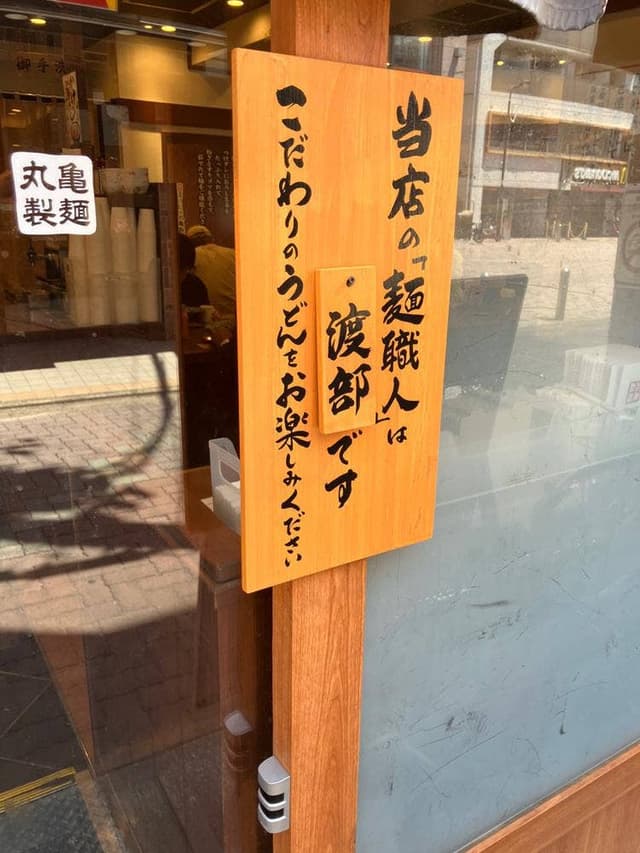 当店の「麺職人」は
渡部です
こだわりのうどんをお楽しみください
丸亀
製麺
McDonald's